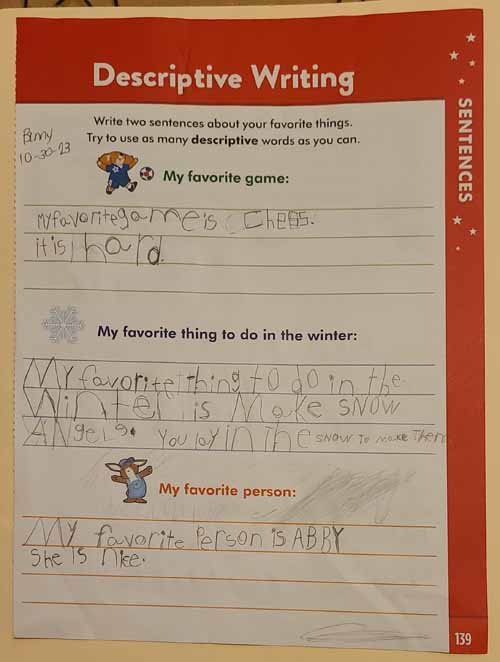 Descriptive Writing
SENTENCES
Write two sentences about your favorite things.
Try to use as many descriptive words as you can.
Benny
10-30-23
My favorite game:
My favorite game is Chess.
it is hard.
My favorite thing to do in the winter:
My favorite thing to do in the
Winter is Make SNOW
ANgeLs. You lay in The SNOW To make Them
My favorite person:
My favorite Person is ABBY
She is nice.
139